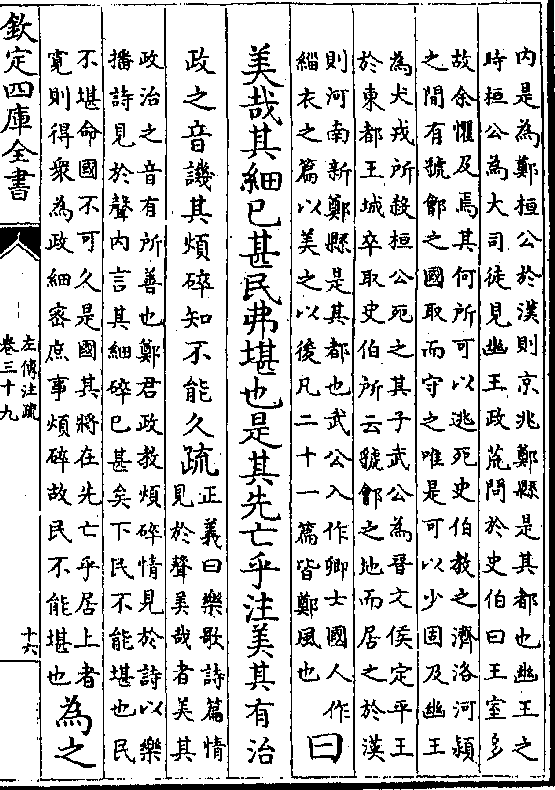 内是為鄭桓公於漢則京兆鄭縣是其都也幽王之
時桓公為大司徒見幽王政荒問於史伯曰王室多
故余懼及焉其何所可以逃死史伯教之濟洛河潁
之間有虢鄶之國取而守之唯是可以少固及幽王
為犬戎所殺桓公死之其子武公為晉文侯定平王
於東都王城卒取史伯所云虢鄶之地而居之於漢
則河南新鄭縣是其都也武公入作卿士國人作
緇衣之篇以美之以後凡二十一篇皆鄭風也
曰
美哉其細已甚民弗堪也是其先亡乎注美其有治
政之音譏其煩碎知不能久疏
正義曰樂歌詩篇情
見於聲美哉者美其
政治之音有所善也鄭君政教煩碎情見於詩以樂
播詩見於聲内言其細碎已甚矣下民不能堪也民
不堪命國不可久是國其將在先亡乎居上者
寛則得衆為政細密庶事煩碎故民不能堪也
為之
欽定四庫全書
左傳注疏
卷三十九
十六